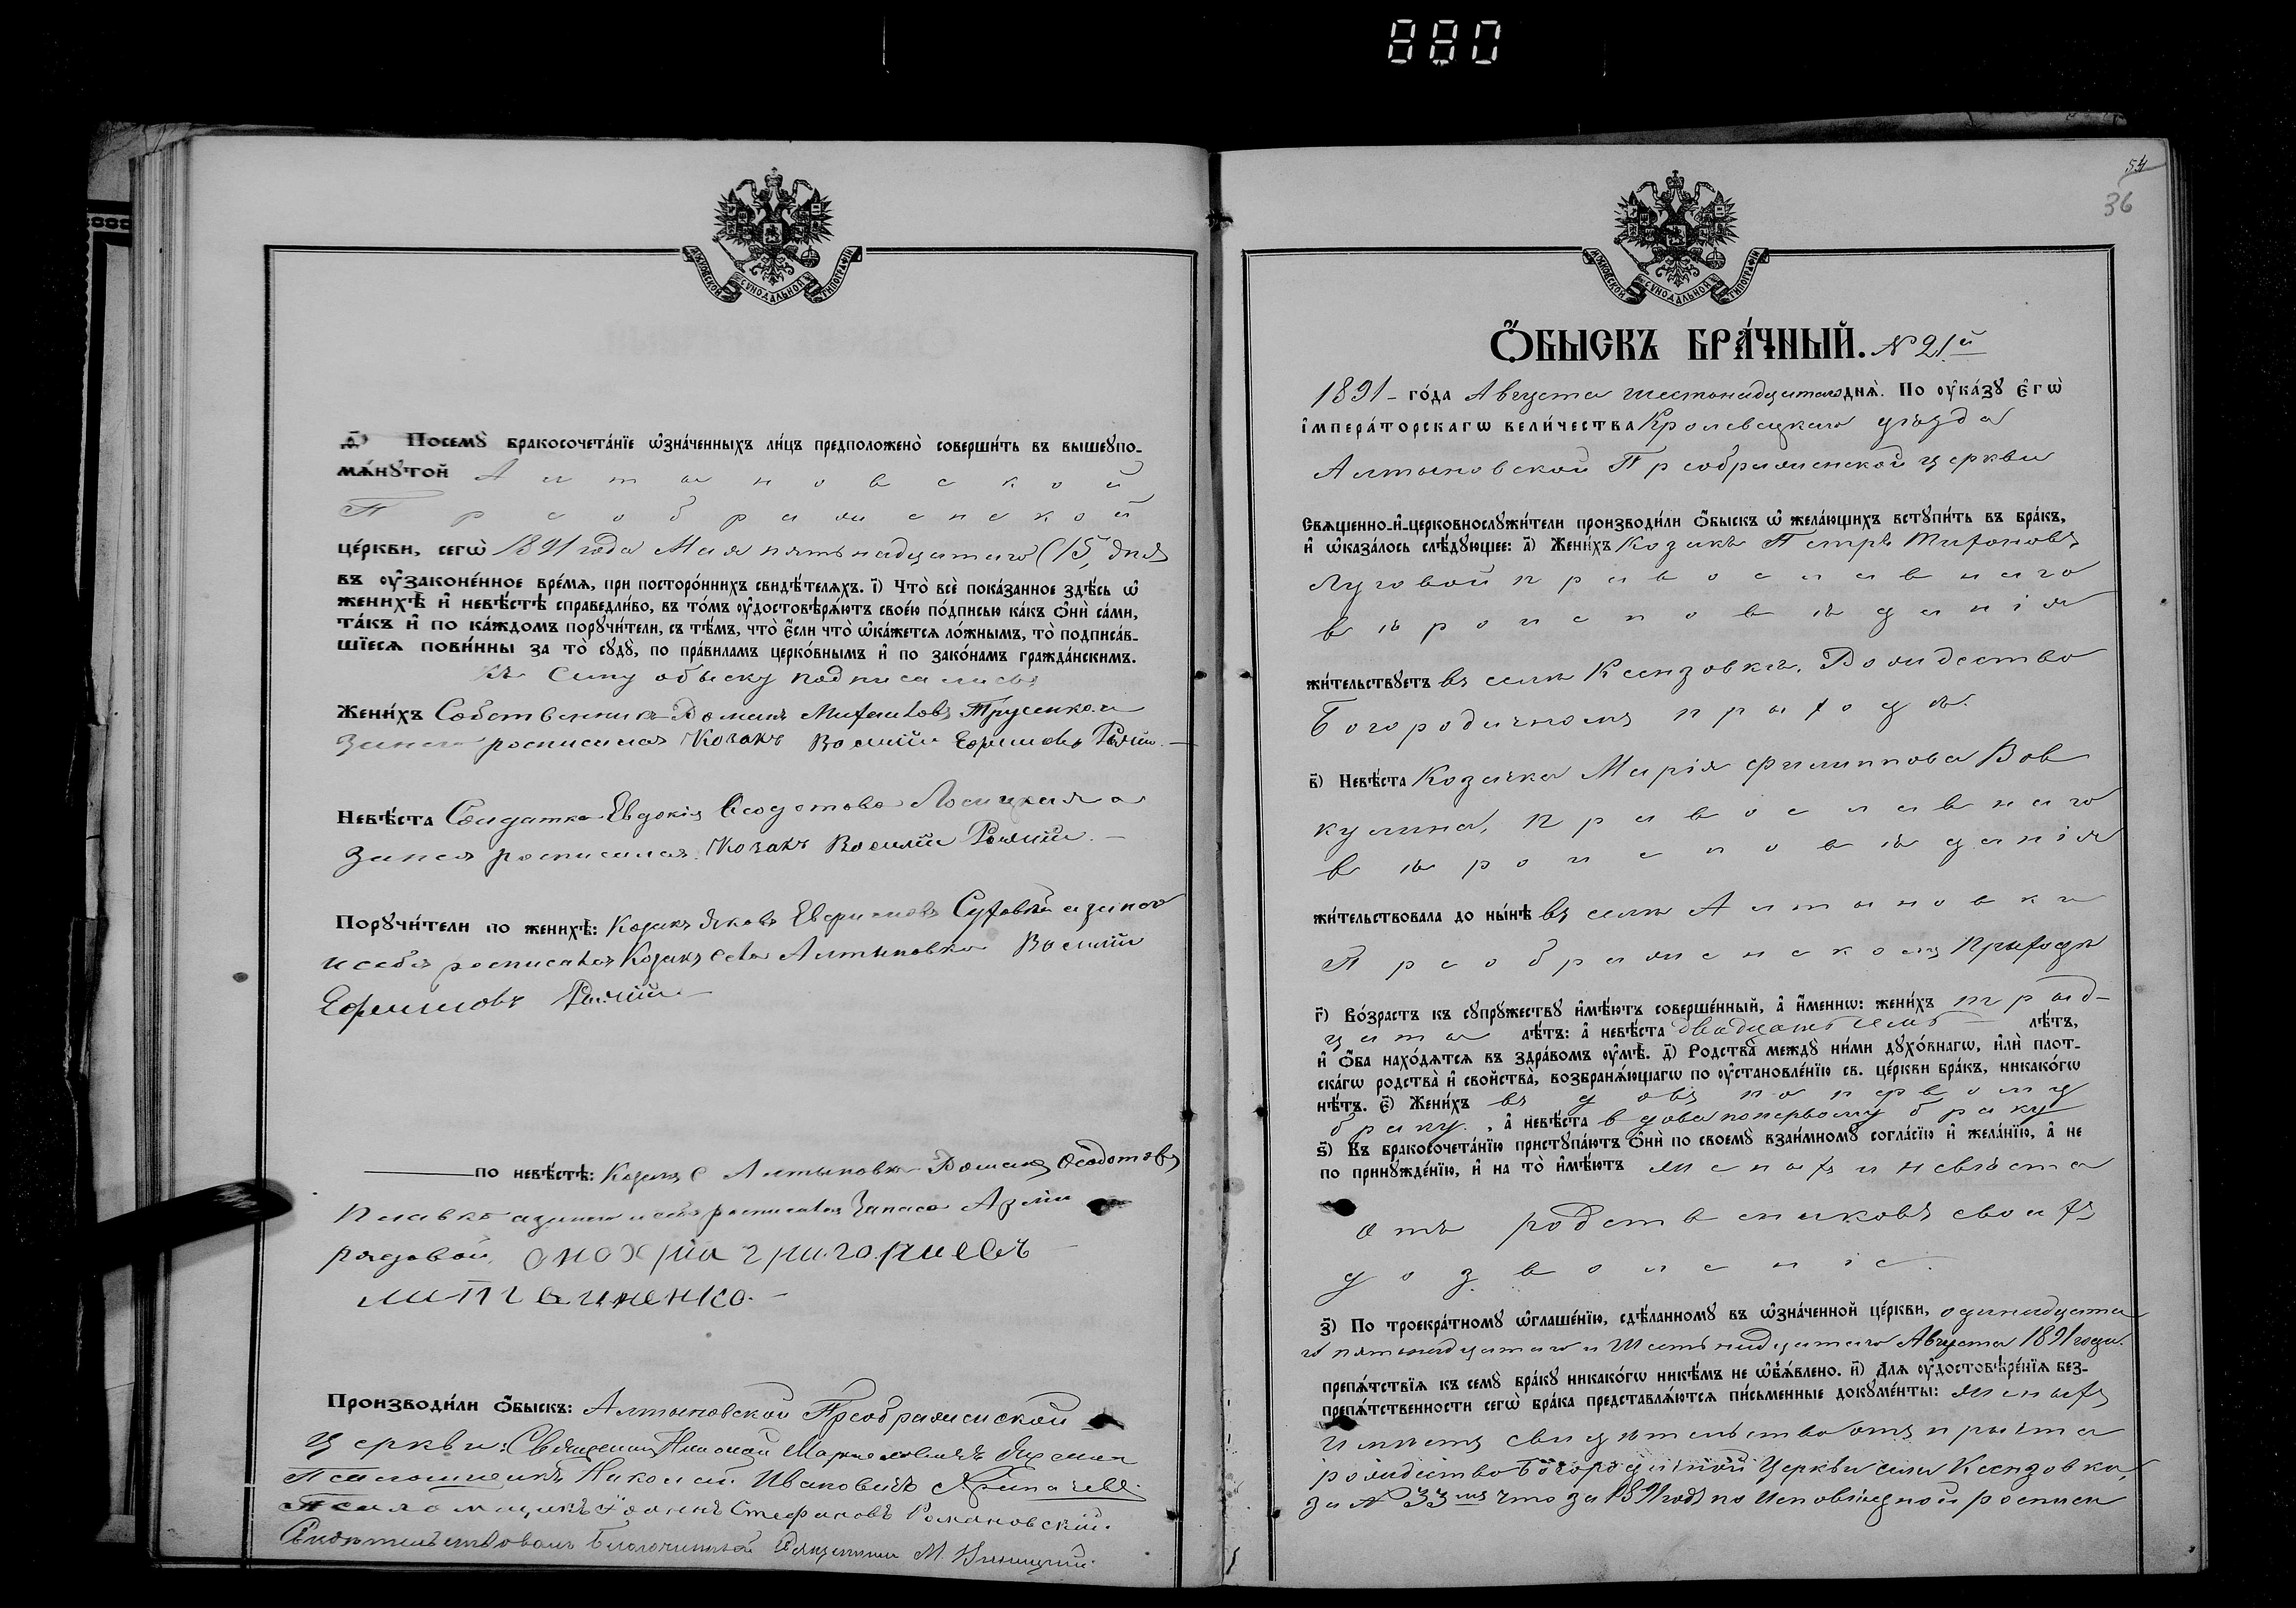 880
МОСКОВСКОЙ СУНОДАЛЬНОЙ ТИПОГРАФІИ
д҃) Посемꙋ̀ бракосочета́нїе ѡ҆зна́ченныхъ ли́цъ предположено̀ соверши́ть въ вышеꙋпо-
мѧ́нꙋтой Алтыновской
Преображенской
це́ркви, сегѡ̀ 1891 года Мая пятьнадцатаго (15, дня
въ ᲂу҆законе́нное вре́мѧ, при посторо́ннихъ свидѣ́телѧхъ. і҃) Что̀ всѐ пока́занное здѣ́сь ѡ҆
женихѣ̀ и҆ невѣ́стѣ справедли́во, въ то́мъ ᲂу҆достовѣрѧ́ютъ свое́ю по́дписью ка́къ ѻ҆нѝ са́ми,
та́къ и҆ по ка́ждомъ порꙋчи́тели, съ тѣ́мъ, что̀ є҆́сли что̀ ѡ҆ка́жетсѧ ло́жнымъ, то̀ подписа́в-
шїесѧ пови́нны за то̀ сꙋдꙋ̀, по пра́виламъ церко́внымъ и҆ по зако́намъ гражда́нскимъ.
Къ сему обыску подписались
Жени́хъ Собственникъ Романъ Михайловъ Трусенко а
занего росписался Козакъ Василій Ефимовъ
Невѣ́ста Солдатка Евдокія Ѳеодотова Лосицкая а
занея росписался Козакъ Василій
Порꙋчи́тели по женихѣ̀: Козакъ Яковъ Суховій а занего
и себя росписался Козакъ села Алтыновки Василій
Ефимовъ
по невѣ́стѣ: Козакъ с Алтыновки Ѳеодотовъ
азанего и себя росписался Запаса Арміи
рядовой, григориевъ
Производи́ли ѻ҆́быскъ: Алтыновской Преображенской
Церкви: Священникъ
Псаломщикъ Николай Ивановичъ
Псаломщикъ Іоаннъ Стефановъ Романовскій.
Свидѣтельствовалъ Благочинный Священникъ М.
54
36
МОСКОВСКОЙ СУНОДАЛЬНОЙ ТИПОГРАФІИ
Ѻ҆́БЫСКЪ БРА́ЧНЫЙ. № 21й
1891 - го́да Августа шестнадцатаго днѧ̀. По ᲂу҆ка́зꙋ є҆гѡ̀
і҆мпера́торскагѡ вели́чества Кролевецкаго уѣзда
Алтыновской Преображенской церкви
Свѧще́нно-и҆-церковнослꙋжи́тели производи́ли ѻ҆́быскъ ѡ҆ жела́ющихъ встꙋпи́ть въ бра́къ,
и҆ ѡ҆каза́лось слѣ́дꙋющее: а҃) Жени́хъ Козакъ Петръ Тихоновъ
Луговой православнаго
вѣроисповѣданія
жи́тельствꙋетъ въ селѣ Ксензовкѣ, Рождество
Богородичномъ приходѣ.
в҃) Невѣ́ста Козачка Марія Филиппова Вов
кулина, православнаго
вѣроисповѣданія
жи́тельствовала до ны́нѣ въ селѣ Алтыновки
Преображенскомъ приходѣ
г҃) Во́зрастъ къ сꙋпрꙋ́жествꙋ и҆мѣ́ютъ соверше́нный, а҆ и҆́меннѡ: жени́хъ трид-
цати лѣ́тъ: а҆ невѣ́ста двадцать семь лѣ́тъ,
и҆ ѻ҆́ба нахо́дѧтсѧ въ здра́вомъ ᲂу҆мѣ̀. д҃) Родства̀ междꙋ̀ ни́ми дꙋхо́внагѡ, и҆лѝ плот-
ска́гѡ родства̀ и҆ свойства̀, возбранѧ́ющагѡ по ᲂу҆становле́нїю св. це́ркви бра́къ, никако́гѡ
нѣ́тъ. є҃) Жени́хъ вдовъ по первому
браку., а҆ невѣ́ста вдова по первому браку
ѕ҃) Въ бракосочета́нїю пристꙋпа́ютъ ѻ҆нѝ по своемꙋ̀ взаи́мномꙋ согла́сїю и҆ жела́нїю, а҆ не
по принꙋжде́нїю, и҆ на то̀ и҆мѣ́ютъ женихъ и невѣста
отъ родствениковъ своихъ
дозволеніе.
з҃) По троекра́тномꙋ ѡ҆глаше́нїю, сдѣ́ланномꙋ въ ѡ҆зна́ченной це́ркви, одинадцата
го пятьнадцатаго и шестьнадцатаго Августа 1891 года.
препѧ́тствїѧ къ семꙋ̀ бра́кꙋ никако́гѡ никѣ́мъ не ѡ҆б̾ѧ́влено. и҃) Длѧ ᲂу҆достовѣре́нїѧ без-
препѧ́тственности сегѡ̀ бра́ка представлѧ́ютсѧ пи́сьменные докꙋме́нты: Женихъ
имѣетъ свидѣтельство отъ причта
рождество Богородичной Церкви села Ксензовки,
за № 33мъ что за 1891 годъ по исповѣдной росписи